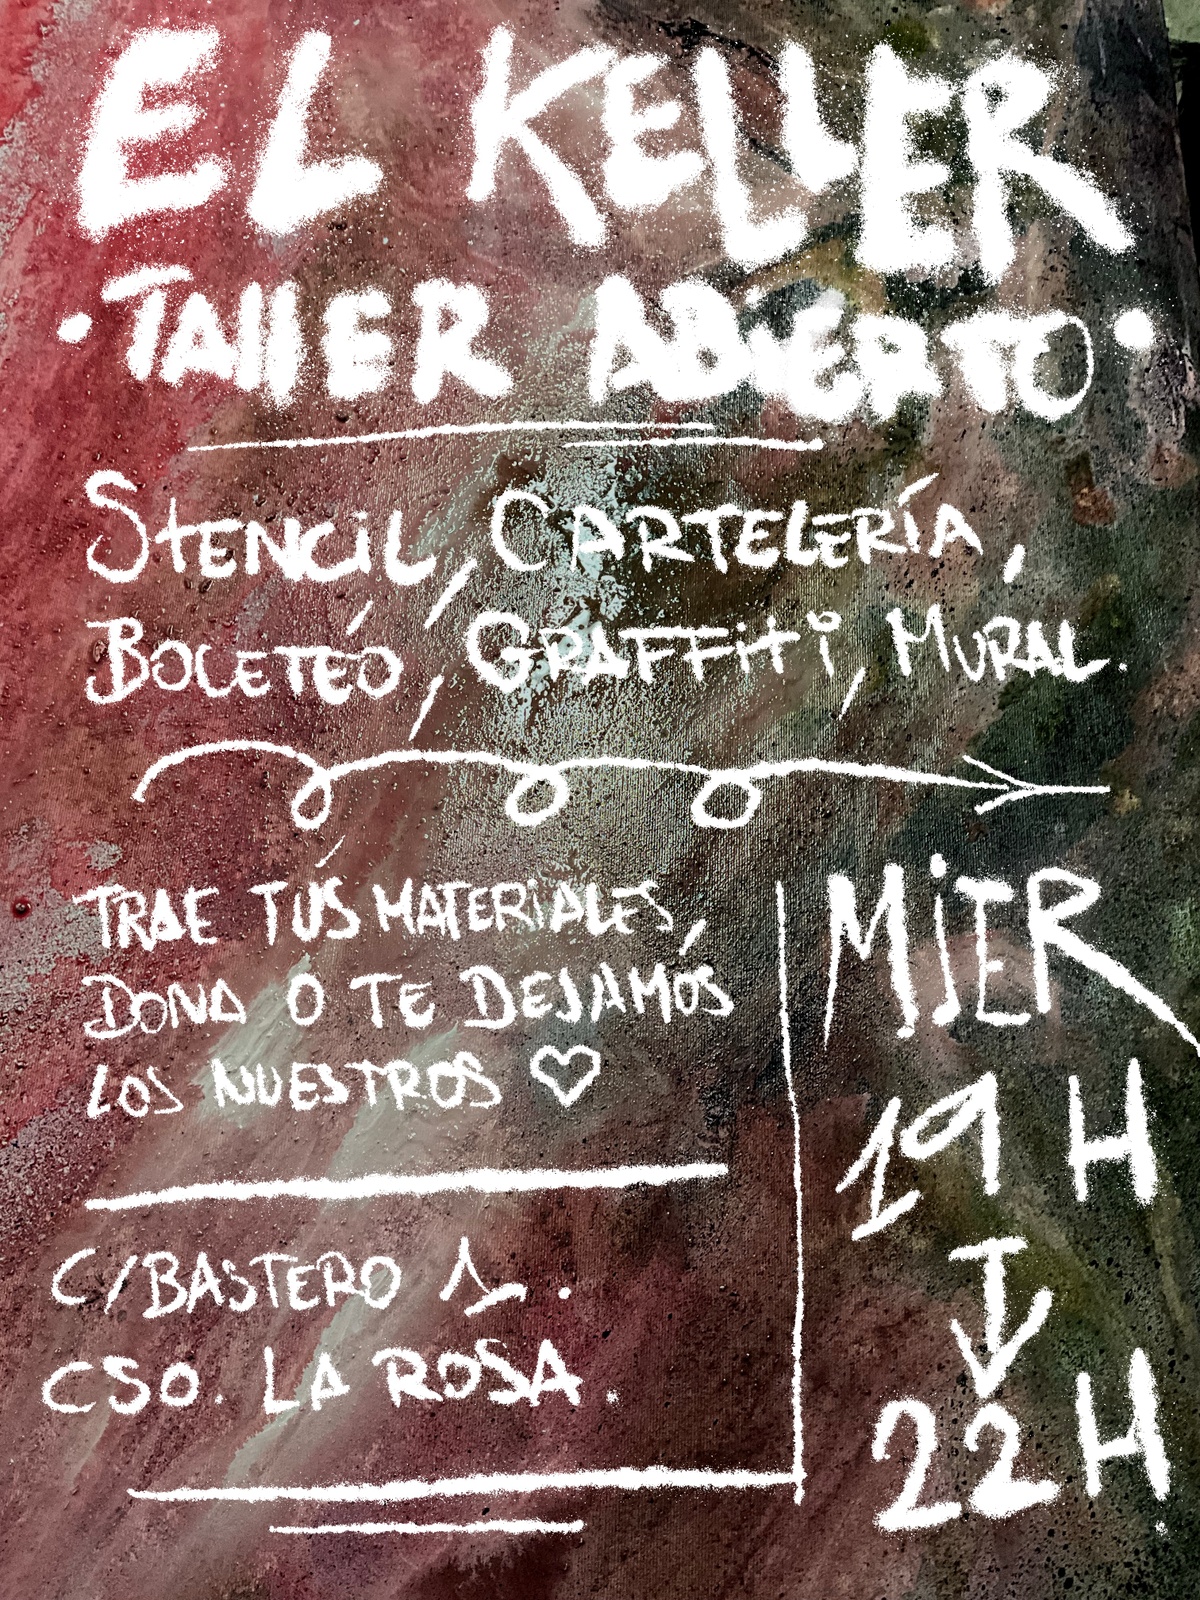 EL KELLER
· TAllER ABiERTO ·
STENCiL, CARTELERÍA,
BOCETEO, GRAFFiTi, MURAL.
TRAE TUS MATERiALES,
DONA O TE DEJAMOS
LOS NUESTROS ♡
C/BASTERO 1.
CSO. LA ROSA.
MiER
19 H
22 H.